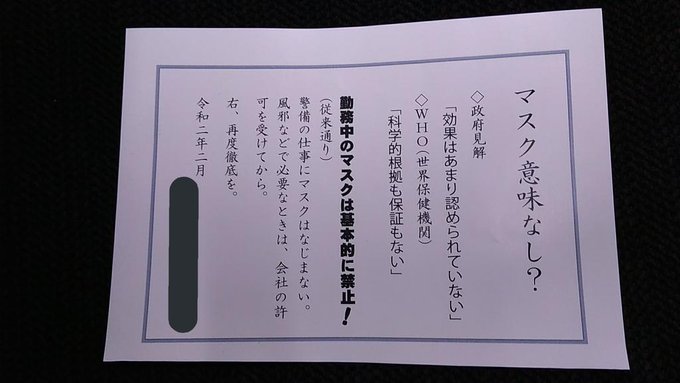 マスク意味なし?
◇政府見解
「効果はあまり認められていない」
◇WHO(世界保健機関)
「科学的根拠も保証もない」
勤務中のマスクは基本的に禁止!
(従来通り)
警備の仕事にマスクはなじまない。
風邪などで必要なときは、会社の許
可を受けてから。
右、再度徹底を。
令和二年二月